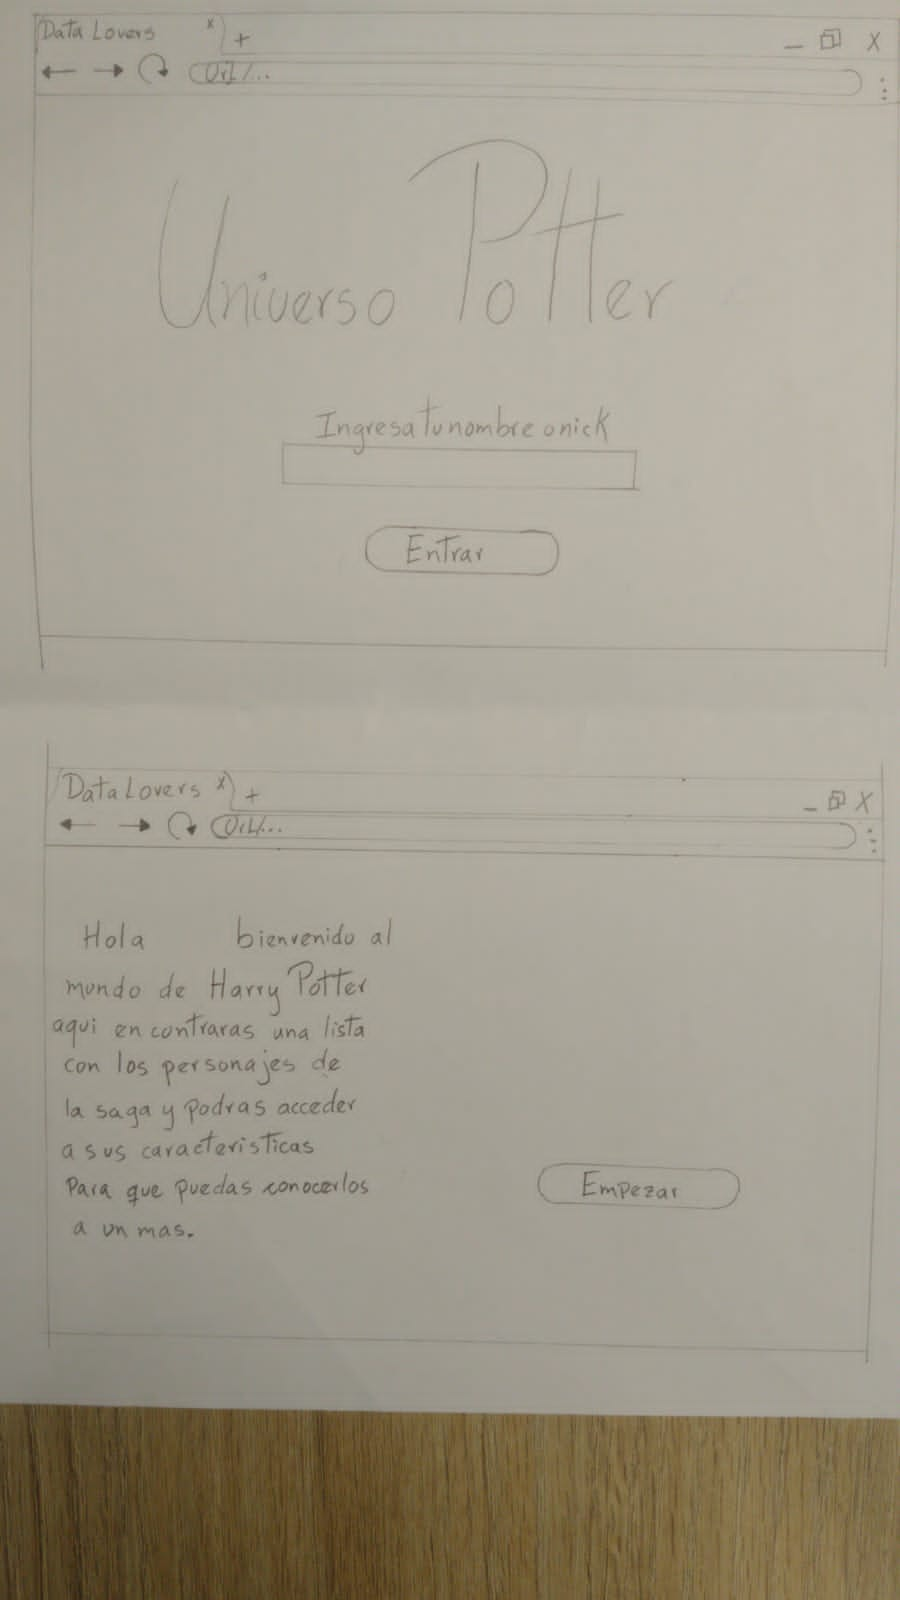 Data Lovers x +
_ X
Url/...
Universo Potter
Ingresa tu nombre o nick
Entrar
Data Lovers x +
_ X
Url/...
Hola bienvenido al
mundo de Harry Potter
aqui encontraras una lista
con los personajes de
la saga y podras acceder
a sus caracteristicas
Para que puedas conocerlos
a un mas.
Empezar